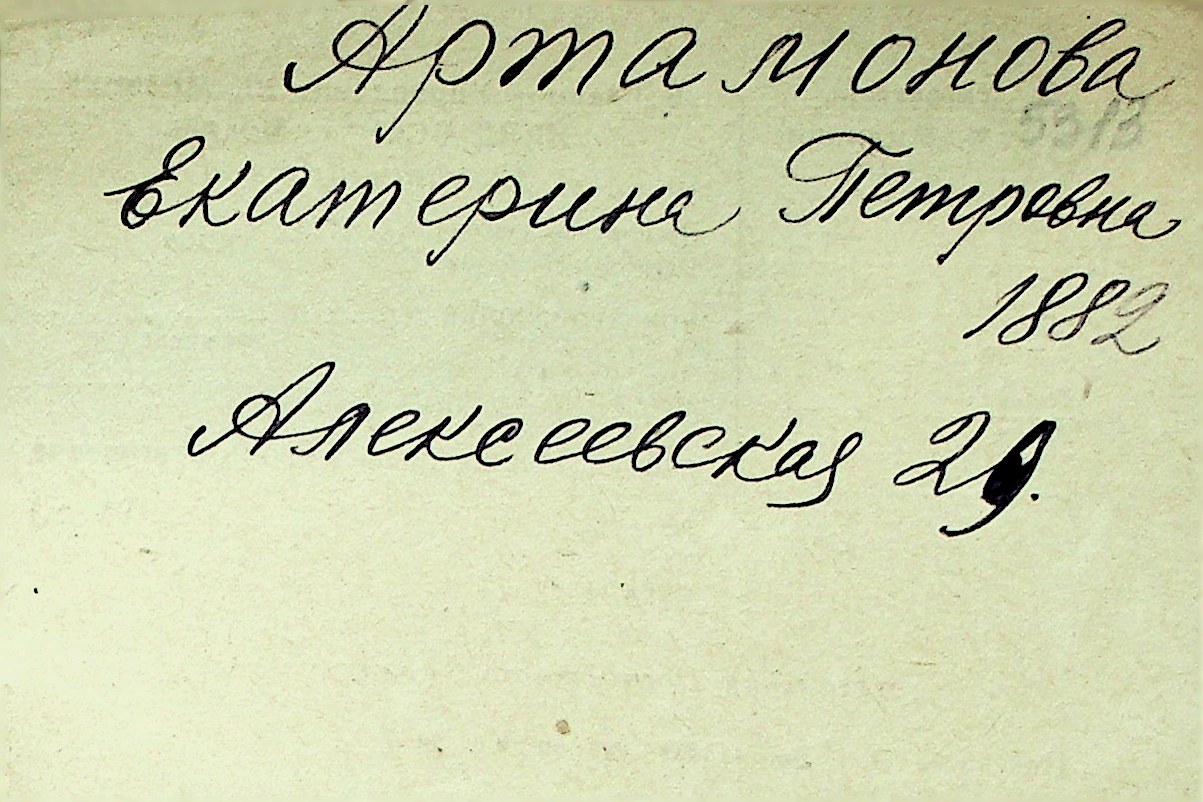 Артамонова
5313
Екатерина Петровна
1882
Алексеевская 29.